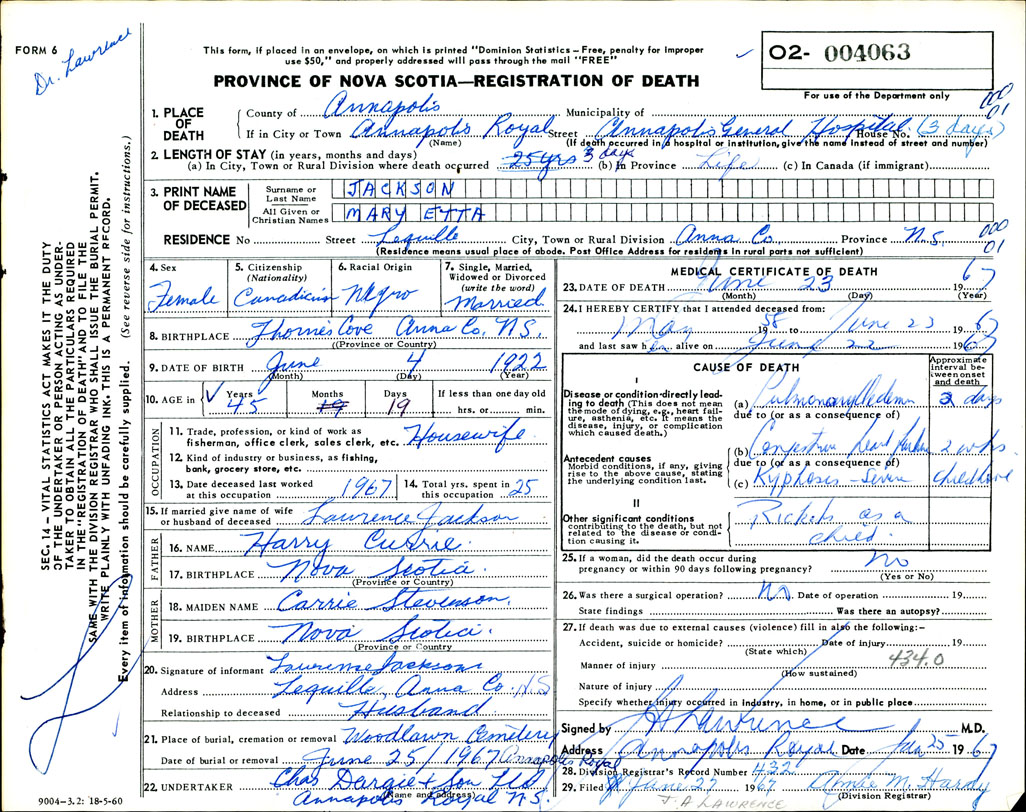 FORM 6
Dr. Lawrence
This form, if placed in an envelope, on which is printed "Dominion Statistics – Free, penalty for improper
use $50," and properly addressed will pass through the mail "FREE"
PROVINCE OF NOVA SCOTIA—REGISTRATION OF DEATH
O2- 004063
For use of the Department only
000
01
SEC. 14 – VITAL STATISTICS ACT MAKES IT THE DUTY
OF THE UNDERTAKER OR PERSON ACTING AS UNDER-
TAKER TO OBTAIN ALL THE PARTICULARS REQUIRED
IN THE "REGISTRATION OF DEATH" AND TO FILE THE
SAME WITH THE DIVISION REGISTRAR WHO SHALL ISSUE THE BURIAL PERMIT.
WRITE PLAINLY WITH UNFADING INK. THIS IS A PERMANENT RECORD.
Every item of information should be carefully supplied. (See reverse side for instructions.)
1. PLACE OF DEATH
County of Annapolis Municipality of
If in City or Town Annapolis Royal Street Annapolis General Hospital House No. (3 days)
(Name) (If death occurred in a hospital or institution, give the name instead of street and number)
2. LENGTH OF STAY (in years, months and days)
(a) In City, Town or Rural Division where death occurred 25 yrs 3 days (b) In Province Life (c) In Canada (if immigrant)
3. PRINT NAME OF DECEASED
Surname or Last Name JACKSON
All Given or Christian Names MARY ETTA
RESIDENCE No Street Lequille City, Town or Rural Division Anna Co. Province N.S.
000
01
(Residence means usual place of abode. Post Office Address for residents in rural parts not sufficient)
4. Sex Female
5. Citizenship (Nationality) Canadian
6. Racial Origin Negro
7. Single, Married, Widowed or Divorced (write the word) Married
8. BIRTHPLACE Thorne's Cove Anna Co. N.S.
(Province or Country)
9. DATE OF BIRTH June 4 1922
(Month) (Day) (Year)
10. AGE in Years 45 Months 19 Days 19 If less than one day old hrs. or min.
OCCUPATION
11. Trade, profession, or kind of work as
fisherman, office clerk, sales clerk, etc. Housewife
12. Kind of industry or business, as fishing,
bank, grocery store, etc.
13. Date deceased last worked at this occupation 1967
14. Total yrs. spent in this occupation 25
15. If married give name of wife or husband of deceased Lawrence Jackson
FATHER
16. NAME Harry Currie
17. BIRTHPLACE Nova Scotia
(Province or Country)
MOTHER
18. MAIDEN NAME Carrie Stevenson
19. BIRTHPLACE Nova Scotia
(Province or Country)
20. Signature of informant Lawrence Jackson
Address Lequille, Anna Co. N.S
Relationship to deceased Husband
21. Place of burial, cremation or removal Woodlawn Cemetery
Date of burial or removal June 25/1967 Annapolis Royal
22. UNDERTAKER Chas Dargie & Son Ltd
(Name and address)
Annapolis Royal N.S.
9004–3.2: 18-5-60
MEDICAL CERTIFICATE OF DEATH
23. DATE OF DEATH June 23 1967
(Month) (Day) (Year)
24. I HEREBY CERTIFY that I attended deceased from:
May 58 to June 23 1967
and last saw her alive on June 22 1967
CAUSE OF DEATH
Approximate interval between onset and death
I
Disease or condition directly leading to death (This does not mean the mode of dying, e.g., heart failure, asthenia, etc. It means the disease, injury, or complication which caused death.)
(a) Pulmonary Oedema 3 days
due to (or as a consequence of)
Antecedent causes
Morbid conditions, if any, giving rise to the above cause, stating the underlying condition last.
(b) Congestive heart failure 2 wks.
due to (or as a consequence of)
(c) Kyphosis – Severe childhood
II
Other significant conditions
contributing to the death, but not related to the disease or condition causing it.
Rickets as a
child.
25. If a woman, did the death occur during
pregnancy or within 90 days following pregnancy? no
(Yes or No)
26. Was there a surgical operation? No. Date of operation 19
State findings Was there an autopsy?
27. If death was due to external causes (violence) fill in also the following:–
Accident, suicide or homicide? Date of injury 19
(State which)
434.0
Manner of injury
(How sustained)
Nature of injury
Specify whether injury occurred in industry, in home, or in public place
Signed by J A Lawrence M.D.
Address Annapolis Royal Date Jun 25 1967
28. Division Registrar's Record Number 432
29. Filed June 27 1967 M. Hardy
(Division Registrar)
J. A LAWRENCE